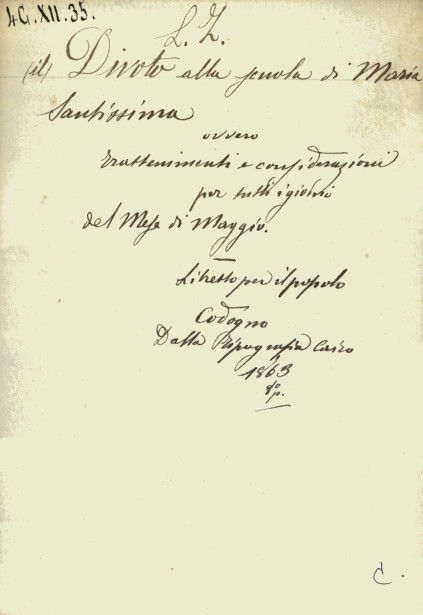 4G.XII.35.
L. Z.
(il) Divoto alla scuola di Maria
Santissima
ovvero
trattenimenti e considerazioni
per tutti i giorni
del Mese di Maggio.
Libretto per il popolo
Codogno
Dalla Tipografia Cairo
1863
8º
p.
C.